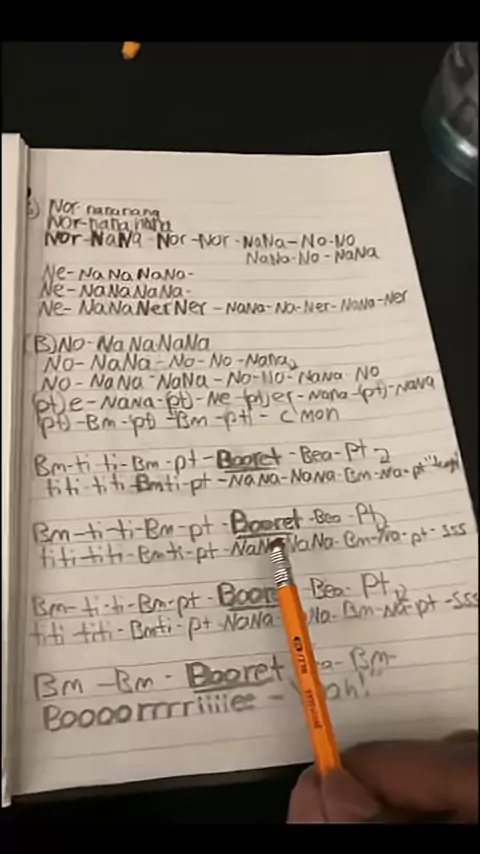 Nor-nananang
Nor-nana nana
Nor-NaNa-Nor-Nor-NaNa-No-No
NaNa-No-NaNa
Ne-NaNaNaNa-
Ne-NaNaNaNa-
Ne-NaNaNerNer-NaNa-Na-Ner-NaNa-Ner
(B) No-NaNaNaNa
No-NaNa-No-No-Nana
No-NaNa-NaNa-No-No-NaNa No
(pt)e-NaNa-(pt)-Ne-(pt)er-Nana-(pt)-Nana
(pt)-Bm-(pt)-Bm-pt)-C'mon
Bm-ti-ti-Bm-pt-Booret-Bea-Pt
titi-titi-Bmti-pt-NaNa-NaNa-Bm-Na-pt
Bm-ti-ti-Bm-pt-Booret-Bea-Pt
titi-titi-Bmti-pt-NaNa NaNa-Bm-Na-pt-SSS
Bm-ti-ti-Bm-pt- Bea-Pt
titi titi-Bmti-pt-NaNa Na-Bm-Na-pt-SSS
Bm-Bm-Booret -Bm-
Boooorrrriiiiee-